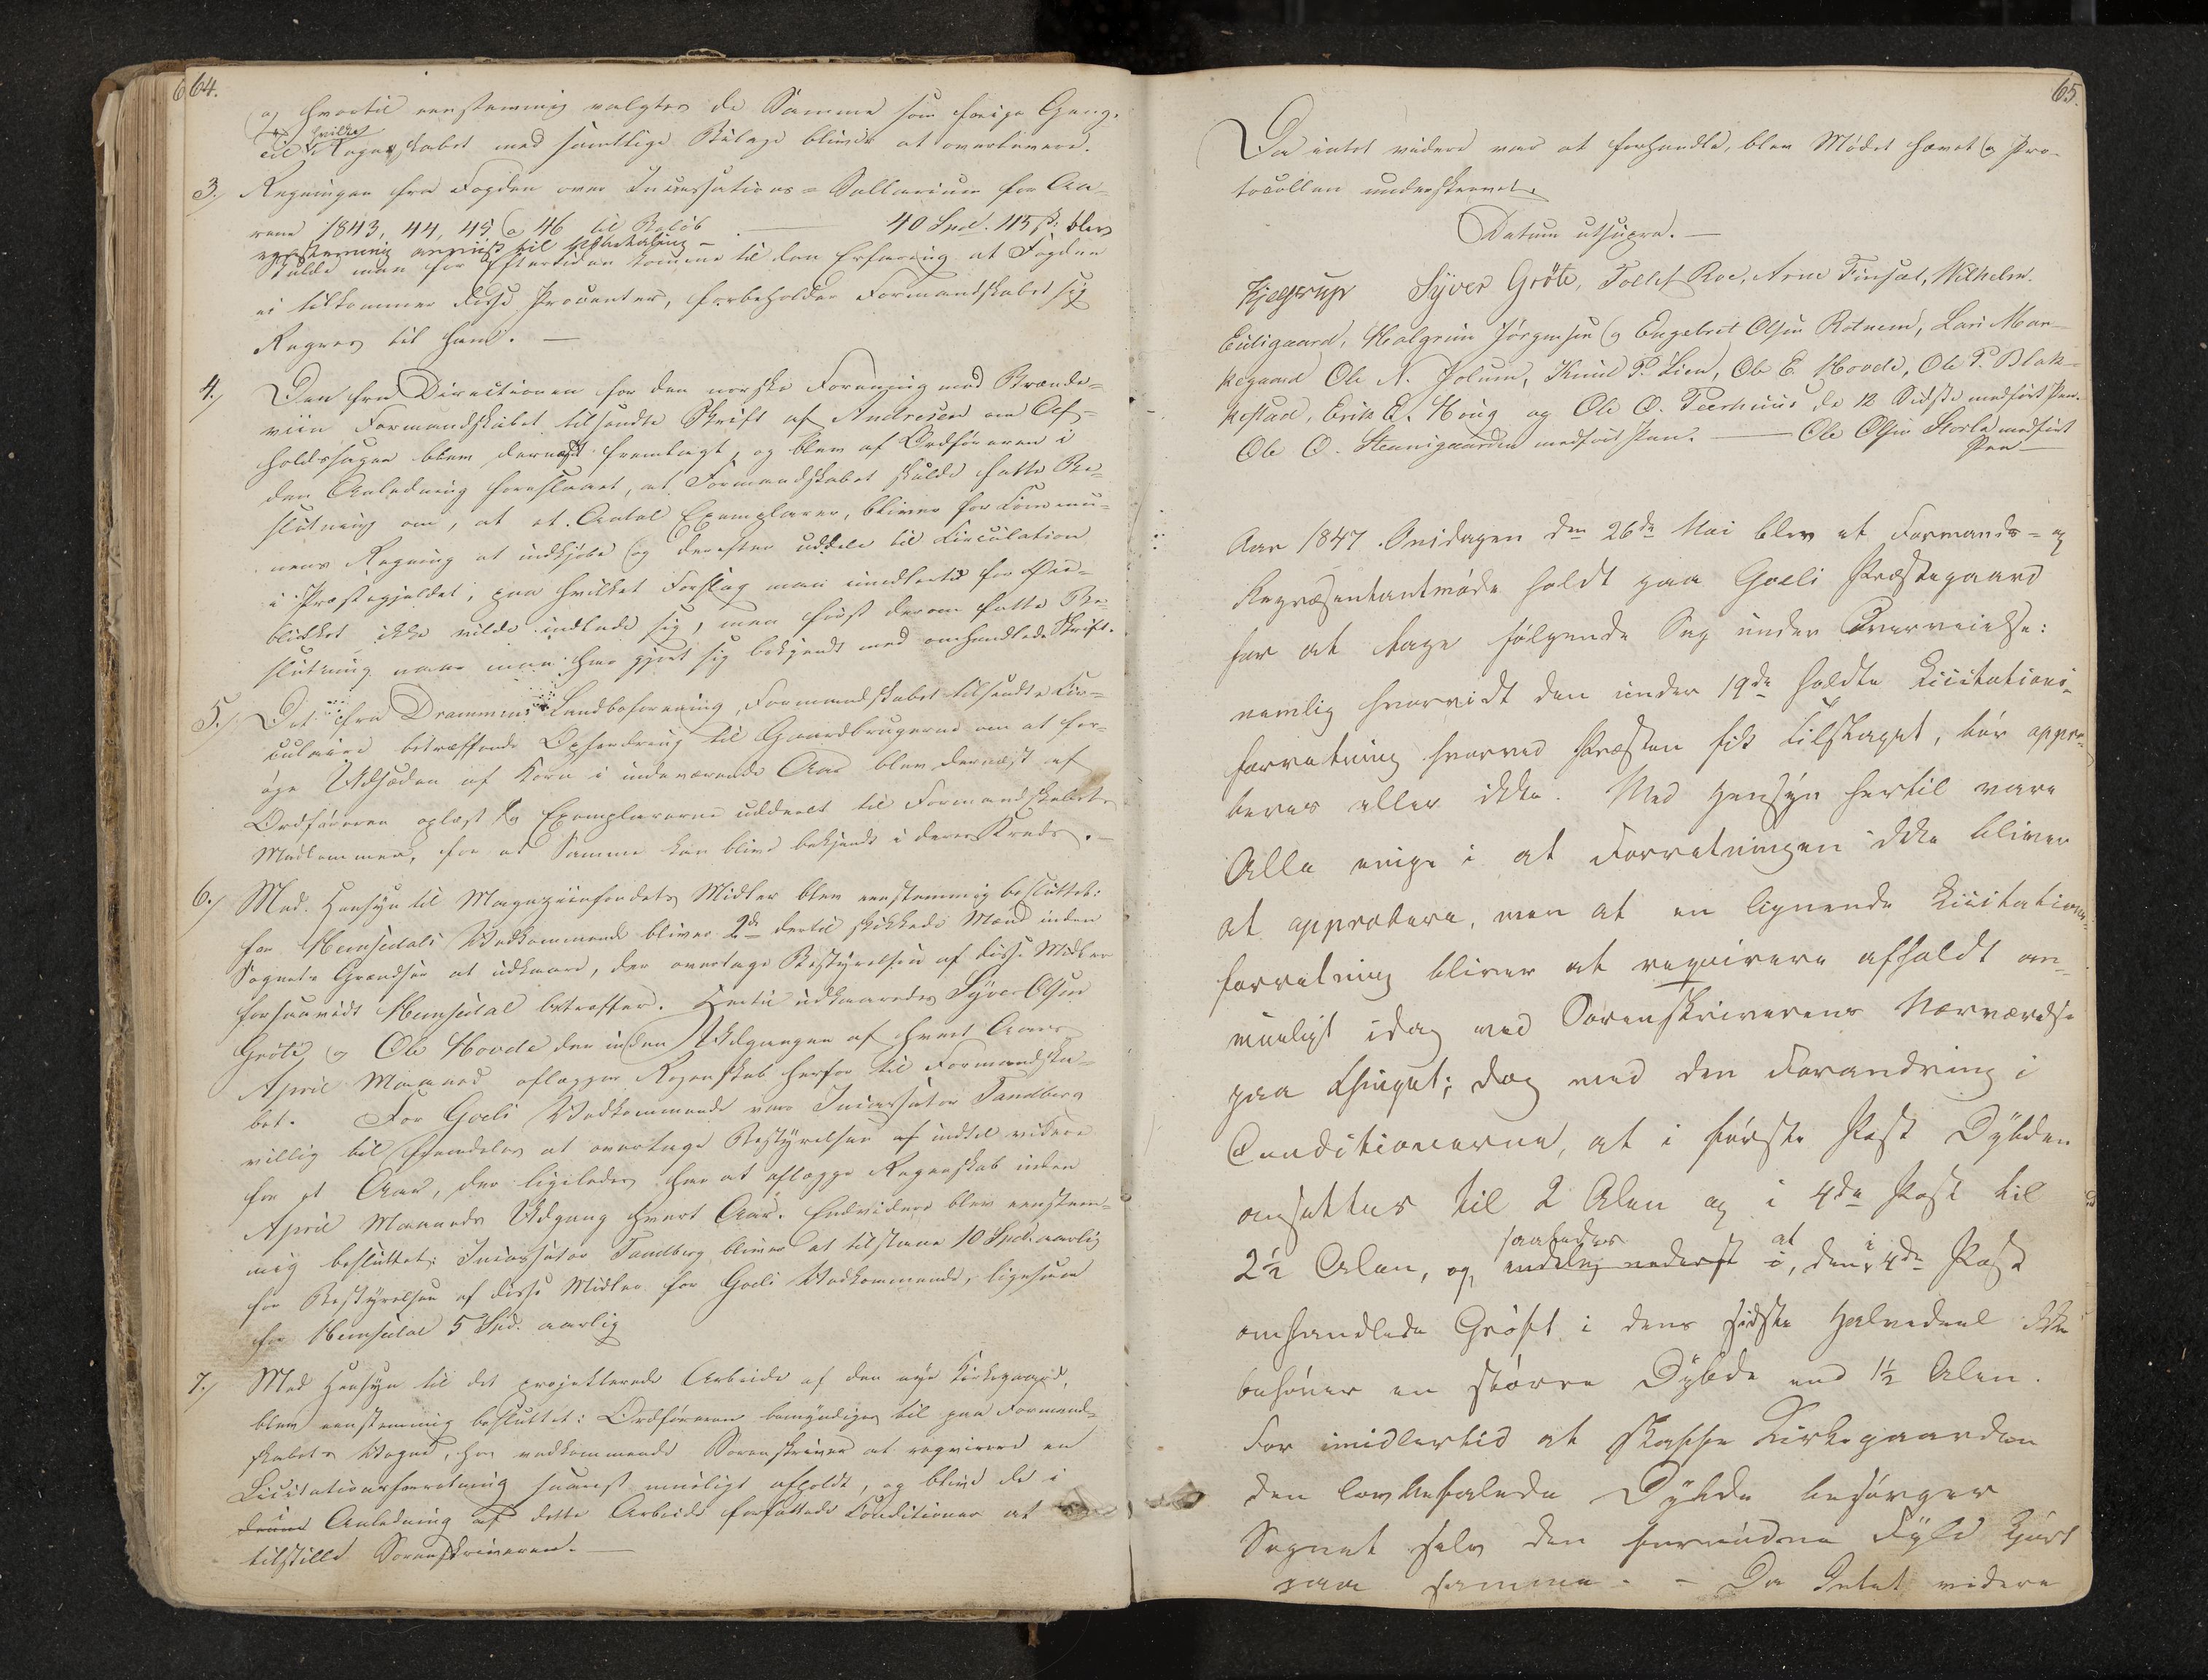 64.
og hvortil eenstemmig valgtes de Samme som forige Gang,
til hvilke Regnskabet med samtlige Bilage bliver at overlevere.
3./ Regningen fra Fogden over Incassations-Sallarium for Aa-
rene 1843, 44, 45 og 46 til Beløb 40 Spd. 115 ß. blev
eenstemmig anviist til Udbetaling –
Skulde man for Eftertiden komme til den Erfaring at Fogden
ei tilkommer disse Procenter, forbeholder Formandskabet sig
Regres til ham. —
4./ Den fra Directionen for den norske Forening mod Brænde-
viin Formandskabet tilsendte Skrift af Andresen om Af-
holdssagen blev dernæst fremlagt, og blev af Ordføreren i
den Anledning foreslaaet, at Formandskabet skulde fatte Be-
slutning om, at et Antal Exemplarer, bliver for Commu-
nens Regning at indkjøbe og derefter uddele til Circulation
i Præstegjeldet; paa hvilket Forslag man imidlertid for Øie-
blikket ikke vilde indlade sig, men først derom fatte Be-
slutning naar man har gjort sig bekjendt med omhandlede Skrift.
5./ Det fra Drammens Landboforening, Formandskabet tilsendte Cir-
culaire betræffende Opfordring til Gaardbrugerne om at for-
øge Udsæden af Korn i indeværende Aar blev dernæst af
Ordføreren oplæst og Exemplarerne uddeelt til Formandskabets
Medlemmer, for at Samme kan blive bekjendt i deres Kreds. —
6./ Med Hensyn til Magaziinfondets Midler blev eenstemmig besluttet:
for Hemsedals Vedkommende bliver 2de dertil skikkede Mænd inden
Sognets Grændser at udkaare, der overtage Bestyrelsen af disse Midler
forsaavidt Hemsedal betræffer. Hertil udkaaredes Syver Olsen
Grøte og Ole Hovde der inden Udgangen af hvert Aars
April Maaned aflægger Regnskab herfor til Formandska-
bet. For Goels Vedkommende var Incassator Sandberg
villig til fremdeles at overtage Bestyrelsen af indtil videre
for et Aar, der ligeledes har at aflægge Regnskab inden
April Maaneds Udgang hvert Aar. Endvidere blev eenstem-
mig besluttet: Incassator Sandberg bliver at tilstaae 10 Spd. aarlig
for Bestyrelsen af disse Midler for Goels Vedkommende, ligesom
for Hemsedal 5 Spd. aarlig
7./ Med Hensyn til det projekterede Arbeide af den nye Kirkegaard,
blev eenstemmig besluttet: Ordføreren bemyndiges til paa Formand-
skabets Vegne, hos vedkommende Sorenskriver at reqvirere en
Licitationsforretning snarest mueligt afholdt, og blive de i
denne Anledning af dette Arbeide forfattede Conditioner at
tilstille Sorenskriveren. —
65.
Da intet videre var at forhandle, blev Mødet hævet og Pro-
tocollen underskrevet.
Datum utsupra. —
Kjelstrup Syver Grøte, Tollef Roe, Arne Finset, Wilhelm
Eikligaard, Halgrim Jørgensen og Engebret Olsen Rotneim, Lars Mar-
kegaard Ole N. Jolum, Knud P. Lien, Ole E. Hovde, Ole P. Blak-
kestad, Erik E. Houg og Ole O. Teerhuus de 12 Sidste medført Pen.
Ole O. Steinsgaarden medført Pen. — Ole Olsen Storla medført
Pen —
Aar 1847 Onsdagen den 26de Mai blev et Formands- og
Repræsentantmøde holdt paa Goeli Præstegaard
for at tage følgende Sag under Overveielse:
nemlig hvorvidt den under 19de holdte Licitations-
forretning hvorved Præsten fik Tilslaget, bør appro-
beres eller ikke. Med Hensyn hertil vare
Alle enige i at Forretningen ikke bliver
at approbere, men at en lignende Licitations-
forretning bliver at reqvirere afholdt om
mueligt idag ved Sorenskriverens Nærværelse
paa Thinget; dog med den Forandring i
Conditionerne, at i første Post Dybden
ansættes til 2 Alen og i 4de Post til
2½ Alen, og endelig nederst saaledes i, at den i 4de Post
omhandlede Grøft i dens sidste Halvedeel ikke
behøver en større Dybde end 1½ Alen.
For imidlertid at skaffe Kirkegaarden
den lovbefalede Dybde besørger
Sognet selv den fornødne Fyld kjørt
paa samme. – Da Intet videre